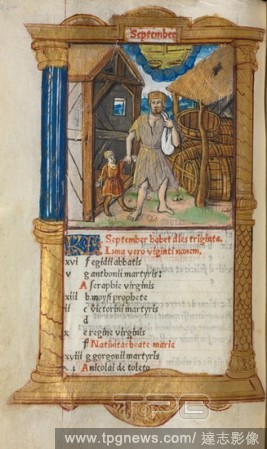 September
KL September habet dies triginta.
Luna vero viginti novem.
xvi f egidii abbatis
v g anthonii martyris:
A seraphie virginis
xiii b moysi prophete
ii c victorini martyris
d
x e regine virginis
f Nativitas beate marie
xviii g gorgonii martyris
A nicolai de toleto
TPG
www.tpgnews.com/達志影像